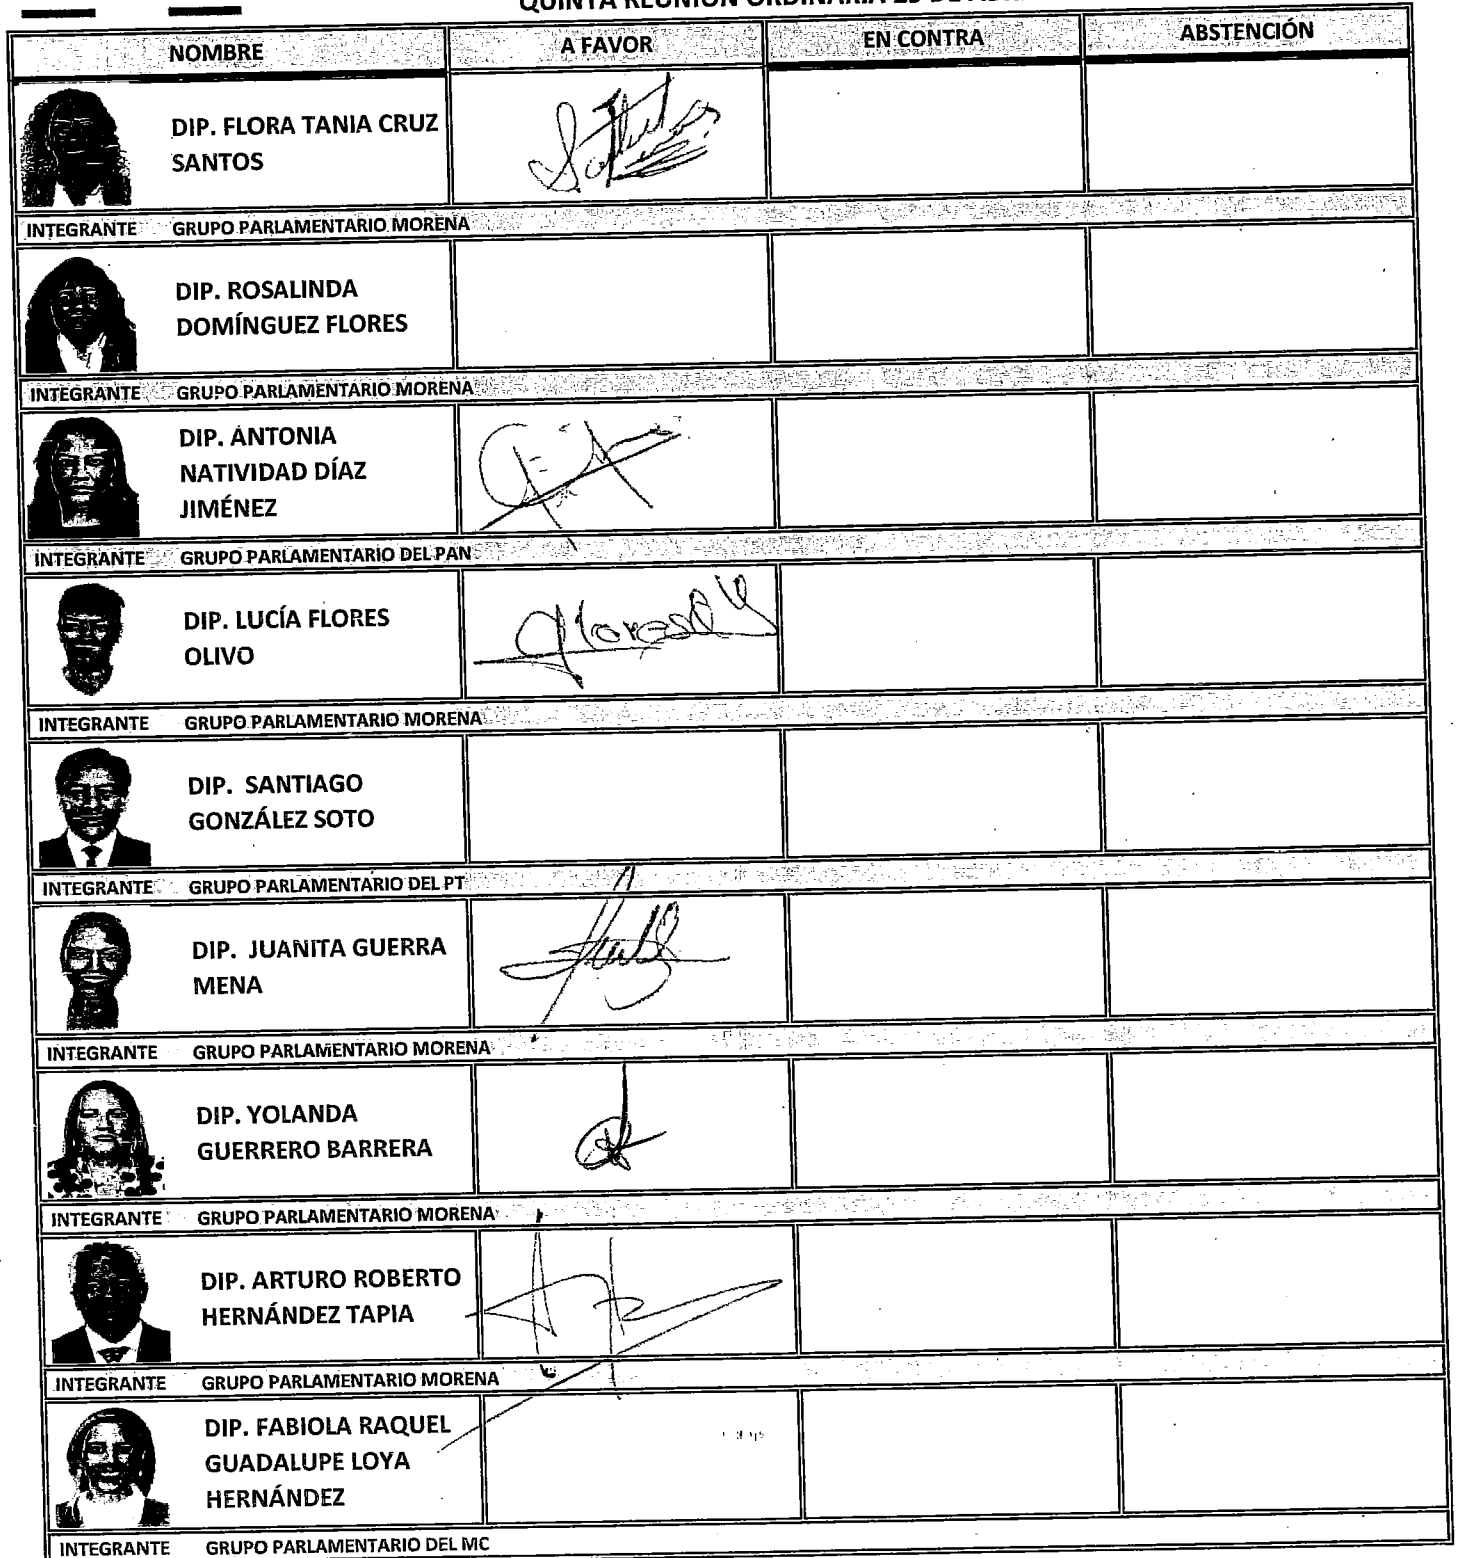 QUINTA REUNIÓN ORDINARIA
NOMBRE A FAVOR EN CONTRA ABSTENCIÓN
DIP. FLORA TANIA CRUZ
SANTOS
INTEGRANTE GRUPO PARLAMENTARIO MORENA
DIP. ROSALINDA
DOMÍNGUEZ FLORES
INTEGRANTE GRUPO PARLAMENTARIO MORENA
DIP. ANTONIA
NATIVIDAD DÍAZ
JIMÉNEZ
INTEGRANTE GRUPO PARLAMENTARIO DEL PAN
DIP. LUCÍA FLORES
OLIVO
INTEGRANTE GRUPO PARLAMENTARIO MORENA
DIP. SANTIAGO
GONZÁLEZ SOTO
INTEGRANTE GRUPO PARLAMENTARIO DEL PT
DIP. JUANITA GUERRA
MENA
INTEGRANTE GRUPO PARLAMENTARIO MORENA
DIP. YOLANDA
GUERRERO BARRERA
INTEGRANTE GRUPO PARLAMENTARIO MORENA
DIP. ARTURO ROBERTO
HERNÁNDEZ TAPIA
INTEGRANTE GRUPO PARLAMENTARIO MORENA
DIP. FABIOLA RAQUEL
GUADALUPE LOYA
HERNÁNDEZ
INTEGRANTE GRUPO PARLAMENTARIO DEL MC